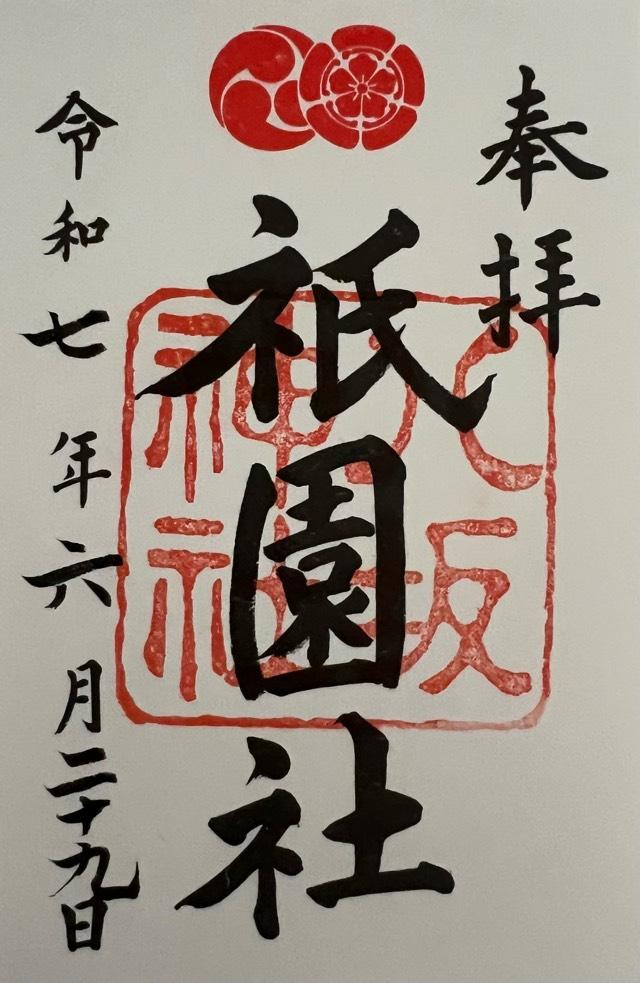 奉拝
祇園社
八坂
神社
令和七年六月二十九日